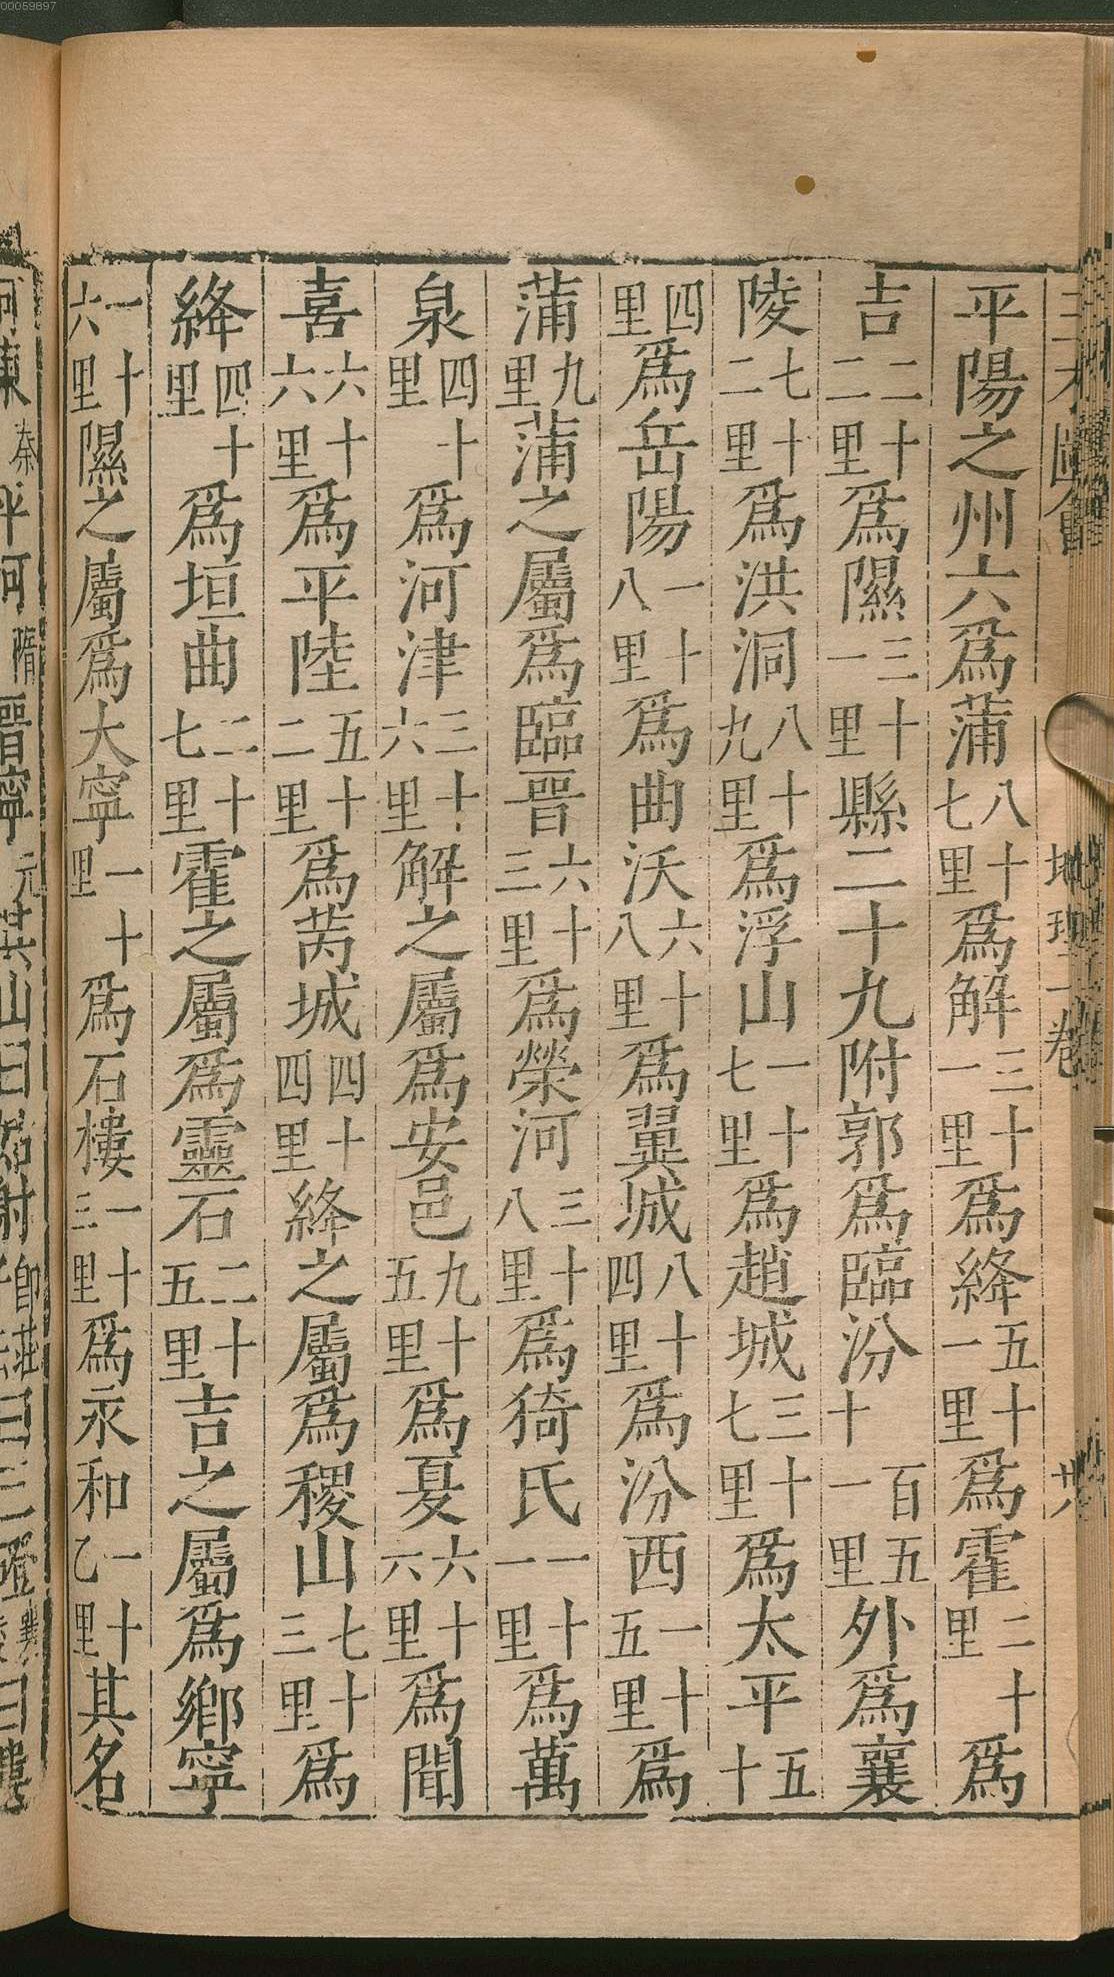 三才圖會 地理二卷
平陽之州六爲蒲八十七里爲解三十一里爲絳五十一里爲霍二十里爲
吉二十二里爲隰三十一里縣二十九附郭爲臨汾百五十一里外爲襄
陵七十二里爲洪洞八十九里爲浮山一十七里爲趙城三十七里爲太平五十
四里爲岳陽一十八里爲曲沃六十八里爲翼城八十四里爲汾西一十五里爲
蒲九里蒲之屬爲臨晉六十三里爲榮河三十八里爲猗氏一十一里爲萬
泉四十里爲河津三十六里解之屬爲安邑九十五里爲夏六十六里爲聞
喜六十六里爲平陸五十二里爲芮城四十四里絳之屬爲稷山七十三里爲
絳四十里爲垣曲二十七里霍之屬爲靈石二十五里吉之屬爲鄉寧
一十六里隰之屬爲大寧一十里爲石樓一十三里爲永和一十乙里其名
河東秦平河隋晉寧元其山曰姑射
00059897